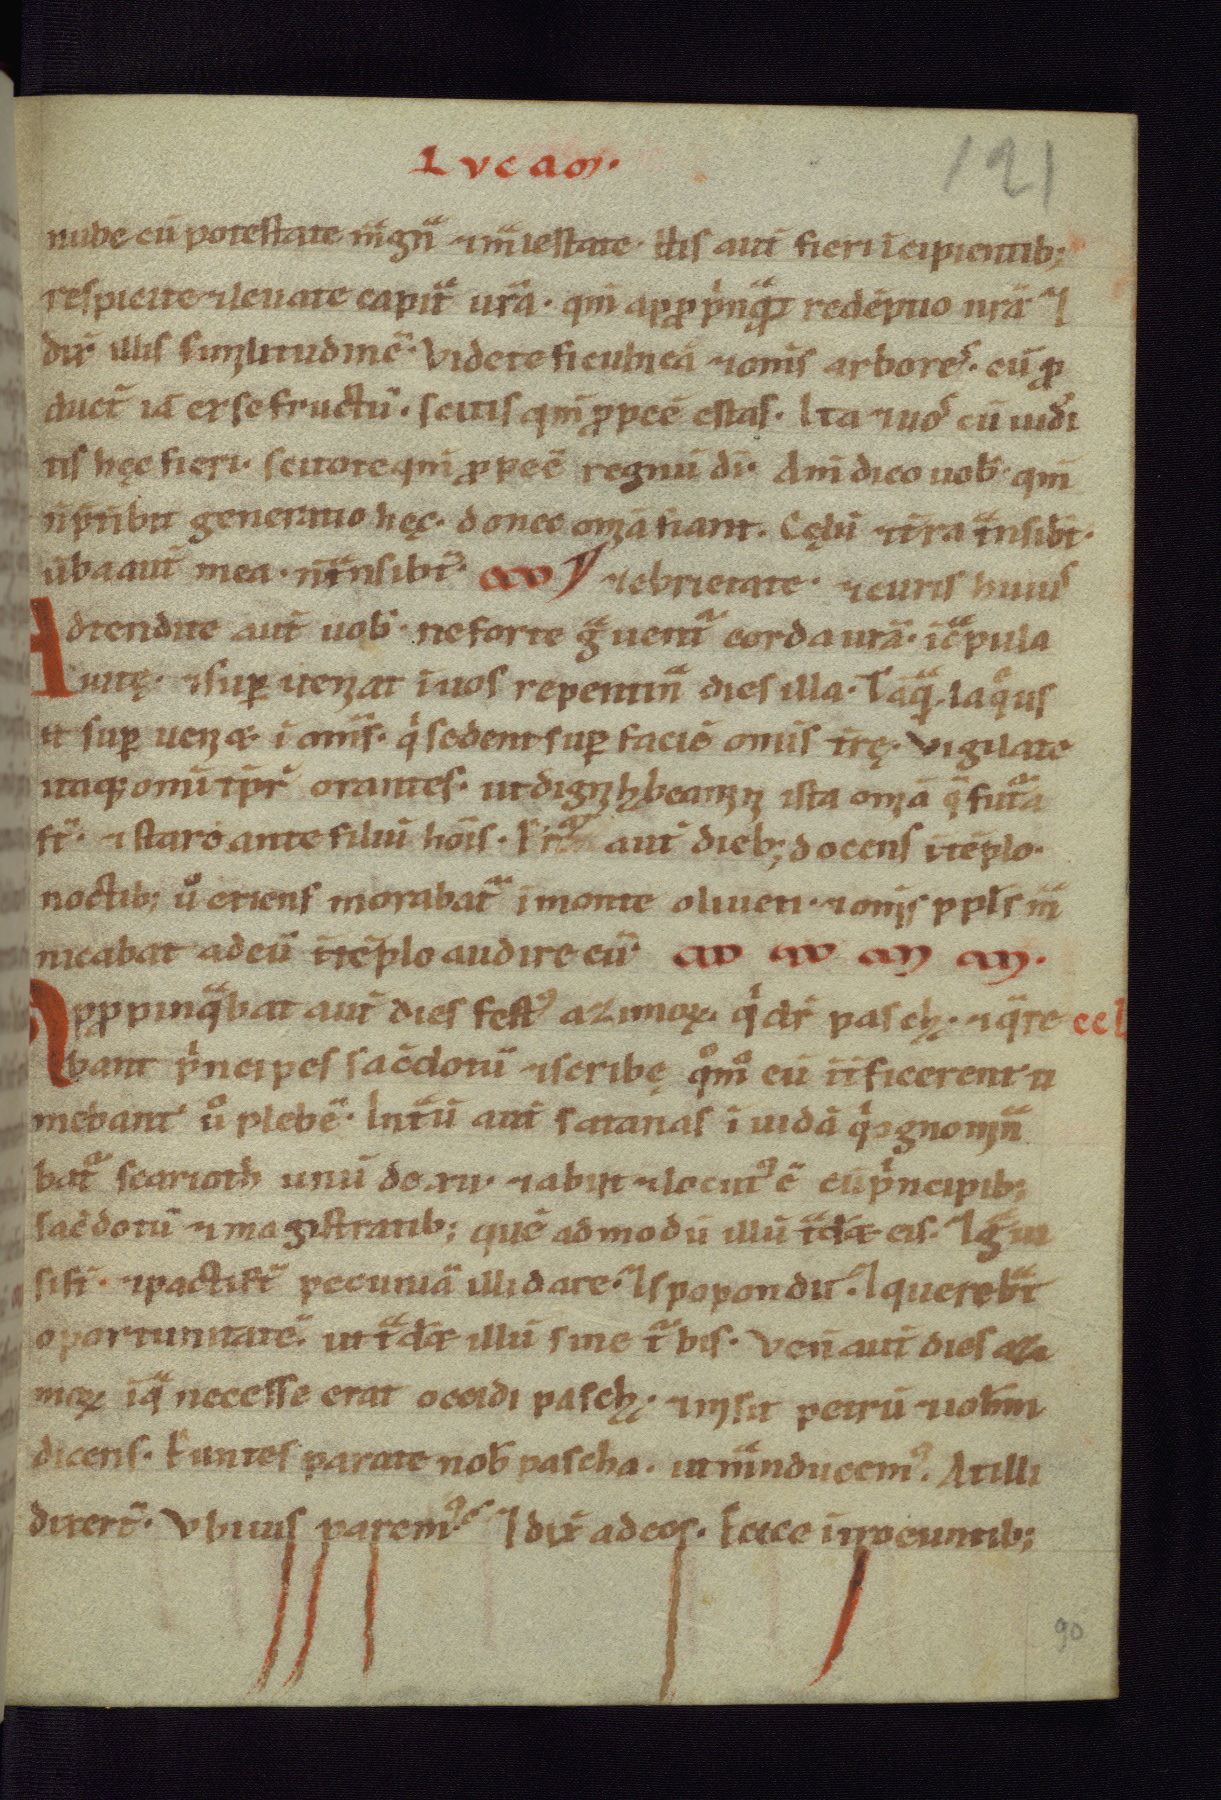 Lucam.
121
nube cū potestate mͣgnͣ ⁊ mͣiestate. Hͥis aut̄ fieri īcipientib;
respicite ⁊ leuate capitͣ ur̄a. qm̄ appꝓpͥnqͣt redēptio ur̄a. Et
dix̄ illis similitudinē. Videte ficulneā ⁊ om̄s arbores. cū ꝓ
duct̄ iā ex se fructū. scitis qm̄ ꝓpe ē estas. Ita ⁊ uos cū uidͤi
tis hęc fieri. scitote qm̄ ꝓpe ē regnū dī. Am̄ dico uob̄. qm̄
n̄ pͣtͥibit generatio hęc. donec om̄ia fiant. Cęlū ⁊ tr̄ra tͣnsibt̄.
ūba aut̄ mea. n̄ tͣnsibt̄. ⁊ ebrietate. ⁊ curis huius
Adtendite aut̄ uob̄. ne forte gͣuentͬ corda ur̄a. ī cͣpula
uitę. ⁊ supueniat ī uos repentinͣ dies illa. Tāqͣ laqͦus
n̄ supueniæ ī om̄s. qͥ sedent sup faciē om̄is tr̄ę. Vigilate
itaq; omī tp̄r̄ orantes. ut digni hͣbeamini ista om̄ia q̄ futͣa
st̄. ⁊ stare ante filiū hōis. Erat aut̄ dieb; docens ī tēplo.
noctib; ūͦ exiens morabatͬ ī monte oliueti. ⁊ om̄is ppl̄s mͣ
nicabat ad eū ī tēplo audire eū.
Appꝓpinqͣbat aut̄ dies festꝰ azimoꝝ. qͥ dr̄ pascha. ⁊ qͣre ccl
bant pͥncipes sac̄dotū ⁊ scribę qͦmͦ eū īt̄ficerent ti
mebant ūͦ plebē. Intͣū aut̄ satanas ī iudā qͥ cognominͣ
batͬ scarioth unū de xii. ⁊ abiit ⁊ locutꝰ ē cū pͥncipib;
sac̄dotū ⁊ magistratib; quē admodū illū tͣdæ eis. Et gͣui
sist̄. ⁊ pacti st̄ pecuniā illi dare. Et spopondit. Et querebͣt
oportunitatē. ut tͣdæ illū sine tͬbis. Venͭ aut̄ dies azi
moꝝ ī qͣ necesse erat occidi pascha. ⁊ misit petrū ⁊ ioh̄m
dicens. Euntes parate nob̄ pascha. ut mͣnducemꝰ. At illi
dixert̄. Vbi uis paremꝰ Et dix̄ ad eos. Ecce ītroeuntib;
90